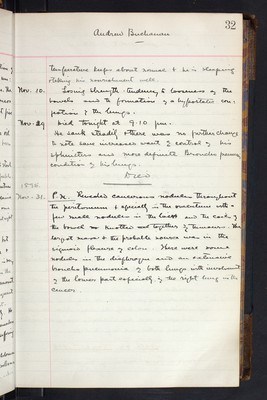 32
Andrew Buchanan
temperature keeps about normal & he is sleeping
& taking his nourishment well.
Nov. 10. Losing strength. Tendency to looseness of the
bowels and to formation of a hypostatic con-
gestion of the lungs.
Nov. 29 Died tonight at 9.10 p.m.
He sank steadily & there was no further change
to note save increased want of control of his
sphincters and more definite Broncho pneumonic
condition of his lungs.
Died
Nov. 31. P.M. Revealed cancerous nodules throughout
the peritoneum & specially in the omentum with a
few small nodules in the and the coils of
the bowel so knotted together by tumours. The
largest mass & the probable source was in the
sigmoid flexure of colon. There were some
nodules in the diaphragm and an extensive
broncho pneumonia of both lungs with involvement
of the lower part especially of the right lung in the
cancer.